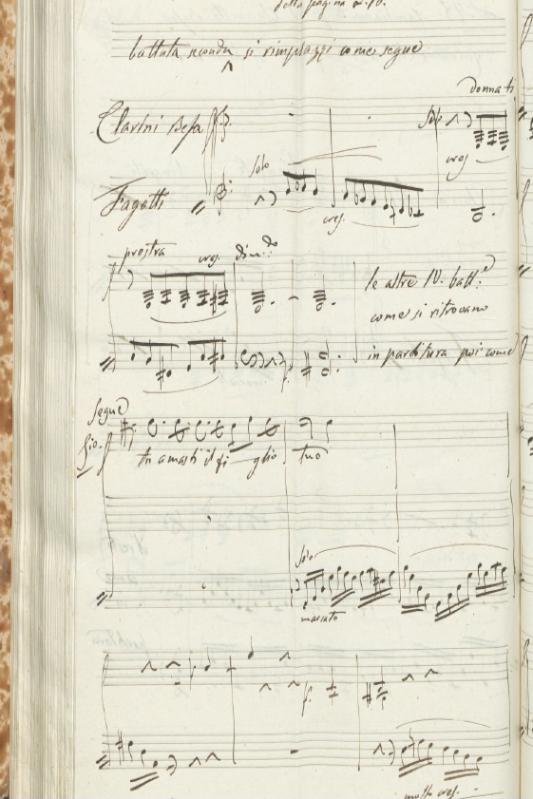 della pagina
battuta seconda si rimpiazzi come segue
donna ti
Clarini
Solo
cres.
Solo
Fagotti
cres.
prostra
cres. dim.do
le altre IV. batt.e
come si ritrovano
in partitura poi come
Segue
Gio.
tu amasti il fi glio tuo
Solo
marcato
f.
molto cres.